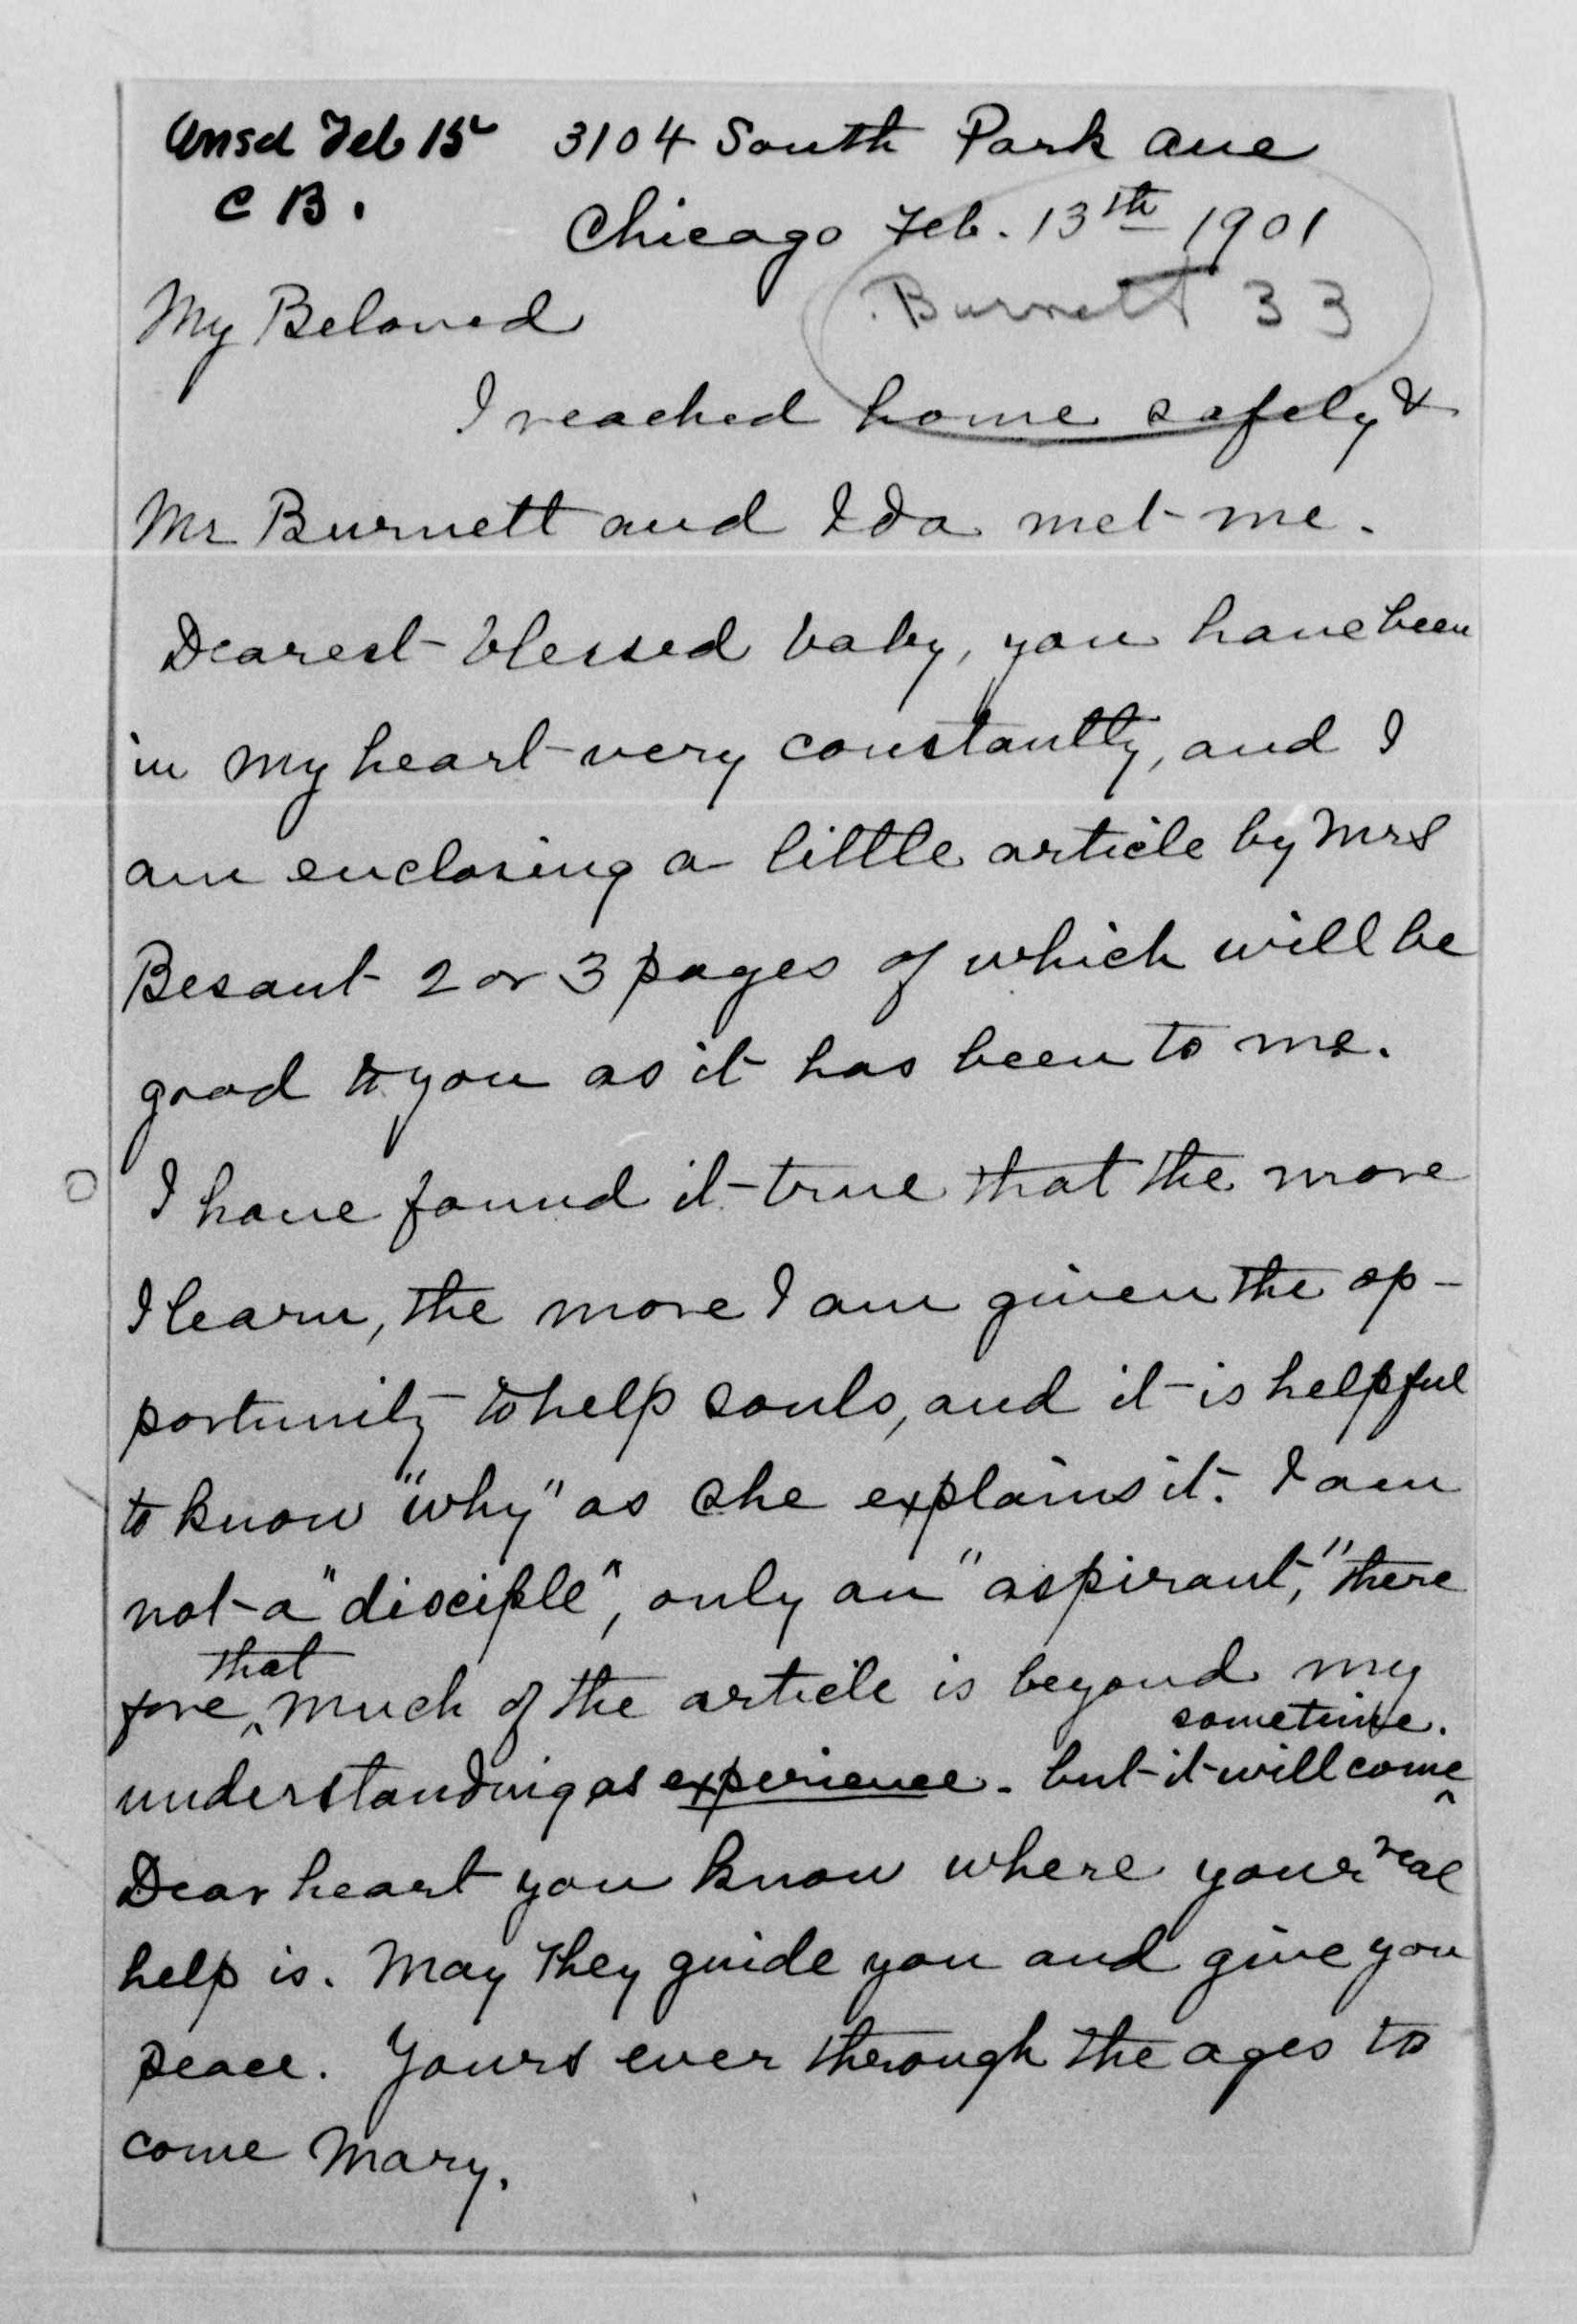 Ansd Feb 15 3104 South Park Ave
C B.
Chicago Feb. 13th 1901
Burnett 33
My Beloved
I reached home safely &
Mr Burnett and Ida met me.
Dearest blessed baby, you have been
in my heart very constantly, and I
am enclosing a little article by Mrs
Besant 2 or 3 pages of which will be
good to you as it has been to me.
I have found it true that the more
I learn, the more I am given the op-
portunity to help souls, and it is helpful
to know "why" as she explains it. I am
not a "disciple", only an "aspirant," there
that
fore ^ much of the article is beyond my
sometime.
understanding as experience. but it will come ^
Dear heart you know where your real
help is. May They guide you and give you
peace. Yours ever through the ages to
come Mary.